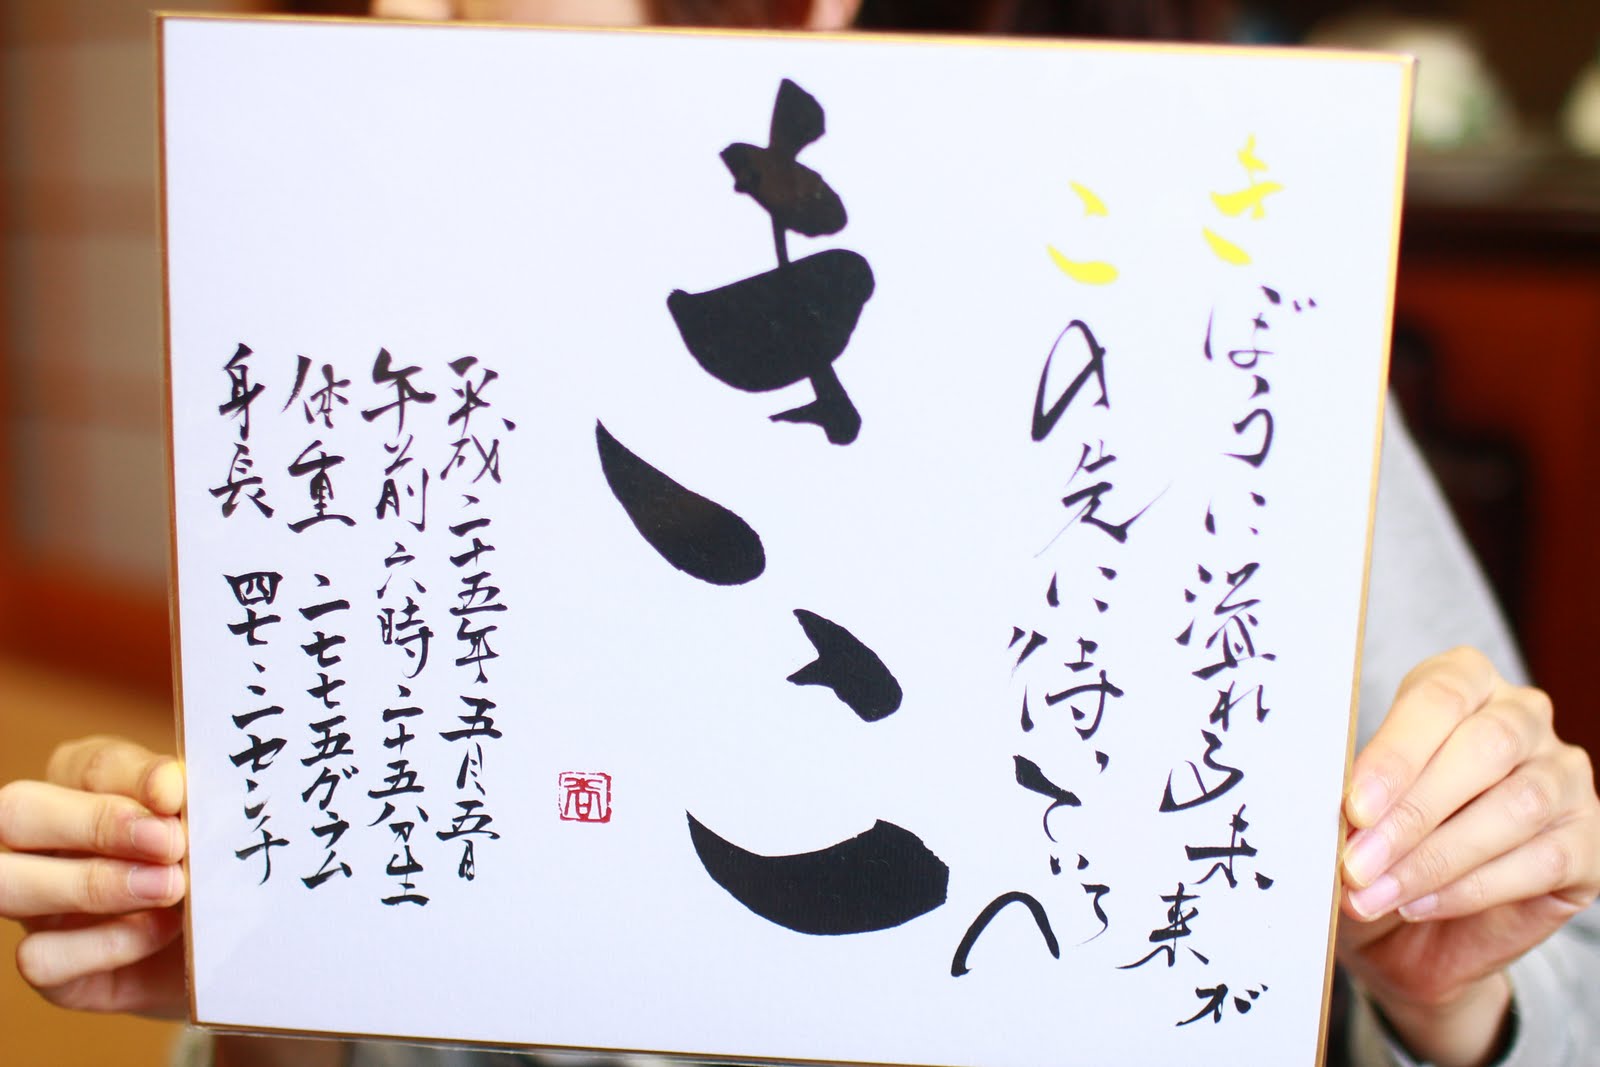 きぼうに溢れる未来が
この先に待っているよ
きこ
平成二十五年五月五日
午前六時二十五分生
体重 二七七五グラム
身長 四七・二センチ